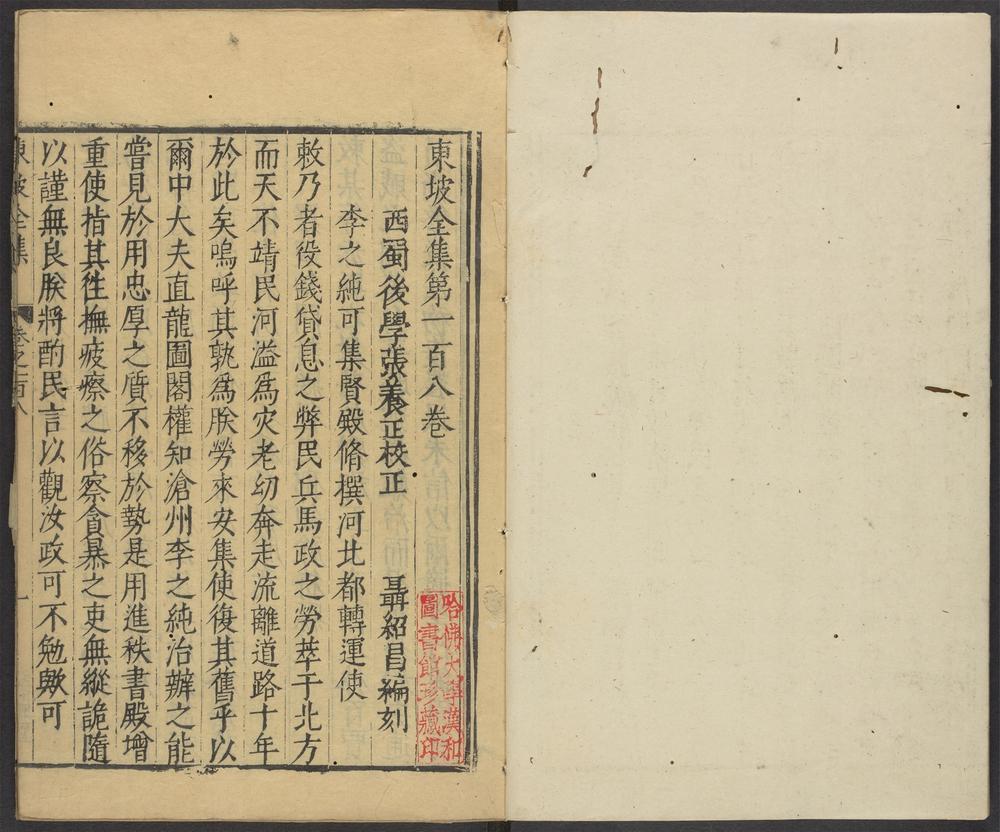 東坡全集第一百八卷
西蜀後學張養正校正 聶紹昌編刻
李之純可集賢殿脩撰河北都轉運使
敕乃者役錢貸息之弊民兵馬政之勞萃于北方
而天不靖民河溢爲灾老幼奔走流離道路十年
於此矣嗚呼其孰爲朕勞來安集使復其舊乎以
爾中大夫直龍圖閣權知滄州李之純治辦之能
嘗見於用忠厚之質不移於勢是用進秩書殿增
重使指其徃撫疲瘵之俗察貪暴之吏無縱詭隨
以謹無良朕將酌民言以觀汝政可不勉歟可
東坡全集 卷之一百八 一
哈佛大學漢和
圖書館珍藏印